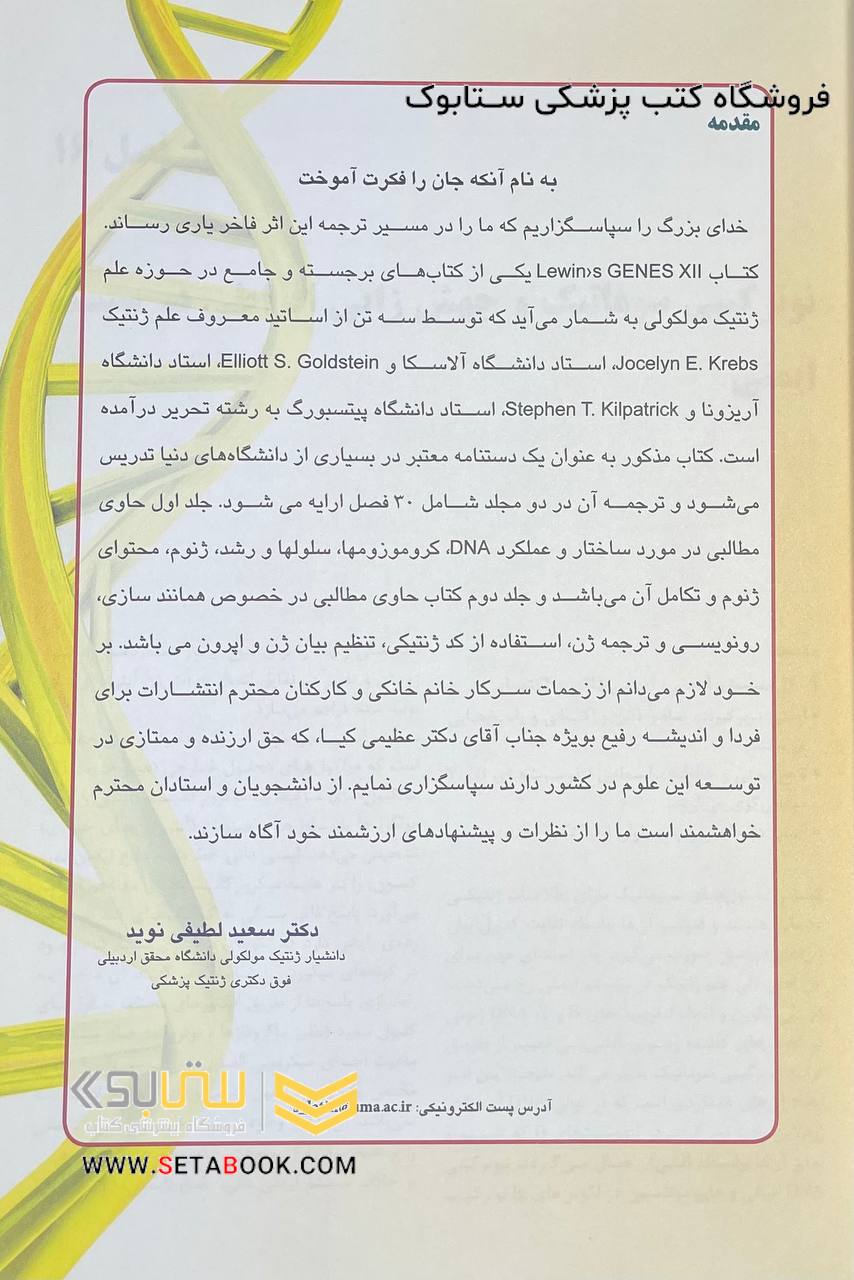 فروشگاه کتب پزشکی ستابوک
مقدمه
به نام آنکه جان را فکرت آموخت
خدای بزرگ را سپاسگزاریم که ما را در مسیر ترجمه این اثر فاخر یاری رساند.
کتاب Lewin›s GENES XII یکی از کتاب‌های برجسته و جامع در حوزه علم
ژنتیک مولکولی به شمار می‌آید که توسط سه تن از اساتید معروف علم ژنتیک
Jocelyn E. Krebs، استاد دانشگاه آلاسکا و Elliott S. Goldstein، استاد دانشگاه
آریزونا و Stephen T. Kilpatrick، استاد دانشگاه پیتسبورگ به رشته تحریر درآمده
است. کتاب مذکور به عنوان یک دستنامه معتبر در بسیاری از دانشگاه‌های دنیا تدریس
می‌شود و ترجمه آن در دو مجلد شامل ۳۰ فصل ارایه می شود. جلد اول حاوی
مطالبی در مورد ساختار و عملکرد DNA، کروموزومها، سلولها و رشد، ژنوم، محتوای
ژنوم و تکامل آن می‌باشد و جلد دوم کتاب حاوی مطالبی در خصوص همانند سازی،
رونویسی و ترجمه ژن، استفاده از کد ژنتیکی، تنظیم بیان ژن و اپرون می باشد. بر
خود لازم می‌دانم از زحمات سرکار خانم خانکی و کارکنان محترم انتشارات برای
فردا و اندیشه رفیع بویژه جناب آقای دکتر عظیمی کیا، که حق ارزنده و ممتازی در
توسعه این علوم در کشور دارند سپاسگزاری نمایم. از دانشجویان و استادان محترم
خواهشمند است ما را از نظرات و پیشنهادهای ارزشمند خود آگاه سازند.
دکتر سعید لطیفی نوید
دانشیار ژنتیک مولکولی دانشگاه محقق اردبیلی
فوق دکتری ژنتیک پزشکی
آدرس پست الکترونیکی: uma.ac.ir
ستابوک
فروشگاه اینترنتی کتاب
WWW.SETABOOK.COM